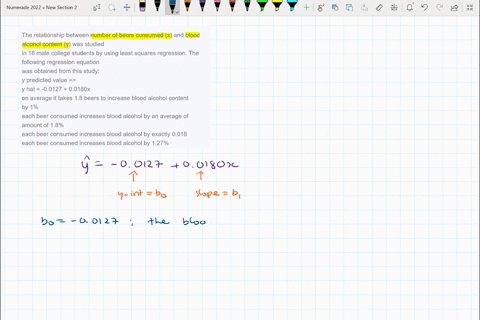 Numerade 2022 » New Section 2
The relationship between number of beers consumed (x) and blood
alcohol content (y) was studied
in 16 male college students by using least squares regression. The
following regression equation
was obtained from this study:
y predicted value =>
y hat = -0.0127 + 0.0180x
on average it takes 1.8 beers to increase blood alcohol content
by 1%
each beer consumed increases blood alcohol by an average of
amount of 1.8%
each beer consumed increases blood alcohol by exactly 0.018
each beer consumed increases blood alcohol by 1.27%
ŷ = -0.0127 + 0.0180x
y-int = b₀ slope = b₁
b₀ = -0.0127 ; the bloo